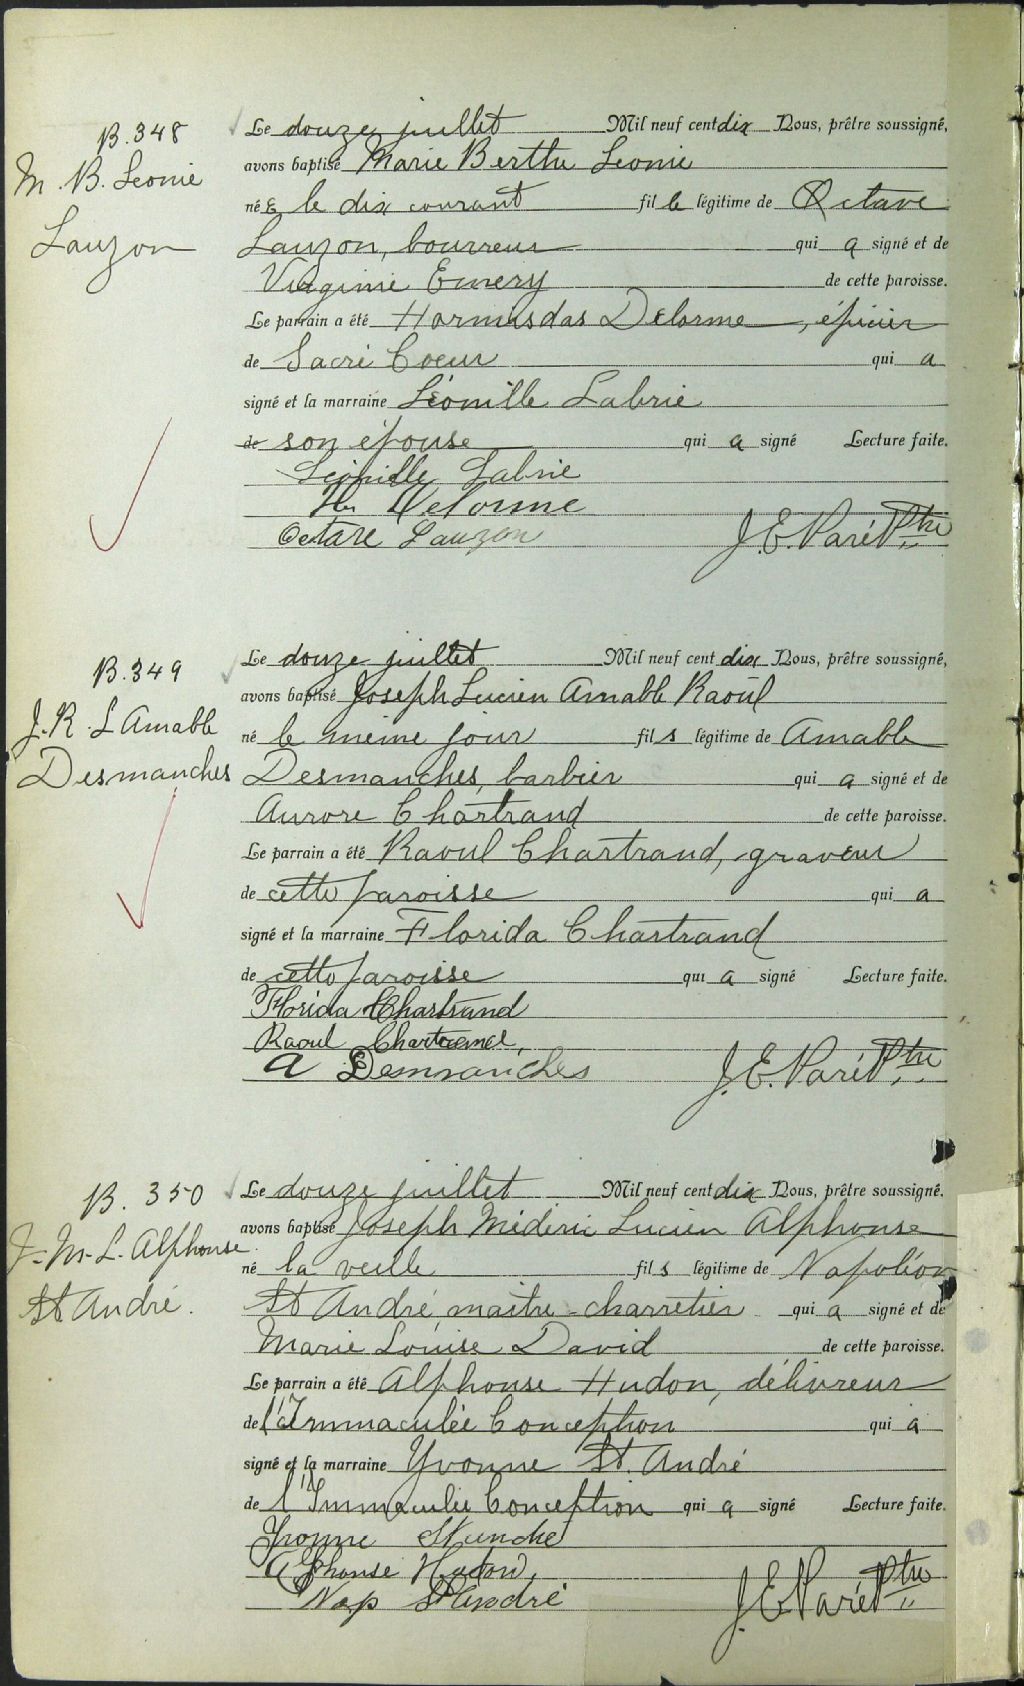 B. 348
M. B. Leonie
Lauzon
Le douze juillet Mil neuf cent dix Nous, prêtre soussigné,
avons baptisé Marie Berthe Leonie
né e le dix courant fil le légitime de Octave
Lauzon, bourreur qui a signé et de
Virginie Emery de cette paroisse.
Le parrain a été Hormisdas Delorme, épicier
de Sacré Coeur qui a
signé et la marraine Léonille Labrie
de son épouse qui a signé Lecture faite.
Léonille Labrie
Hs Delorme
Octave Lauzon J. E. Paré Ptre
B. 349
J. R. L Amable
Desmanches
Le douze juillet Mil neuf cent dix Nous, prêtre soussigné,
avons baptisé Joseph Lucien Amable Raoul
né le même jour fil s légitime de Amable
Desmanches, barbier qui a signé et de
Aurore Chartrand de cette paroisse.
Le parrain a été Raoul Chartrand, graveur
de cette paroisse qui a
signé et la marraine Florida Chartrand
de cette paroisse qui a signé Lecture faite.
Florida Chartrand
Raoul Chartrand,
A Desmanches J. E. Paré Ptre
B. 350
J. M. L. Alphonse
St André.
Le douze juillet Mil neuf cent dix Nous, prêtre soussigné.
avons baptisé Joseph Médéric Lucien Alphonse
né la veille fil s légitime de Napoléon
St André, maître-charretier qui a signé et de
Marie Louise David de cette paroisse.
Le parrain a été Alphonse Hudon, délivreur
de l'Immaculée Conception qui a
signé et la marraine Yvonne St. André
de l'Immaculée Conception qui a signé Lecture faite.
Yvonne St André
Alphonse Hudon,
Nap St André J. E. Paré Ptre